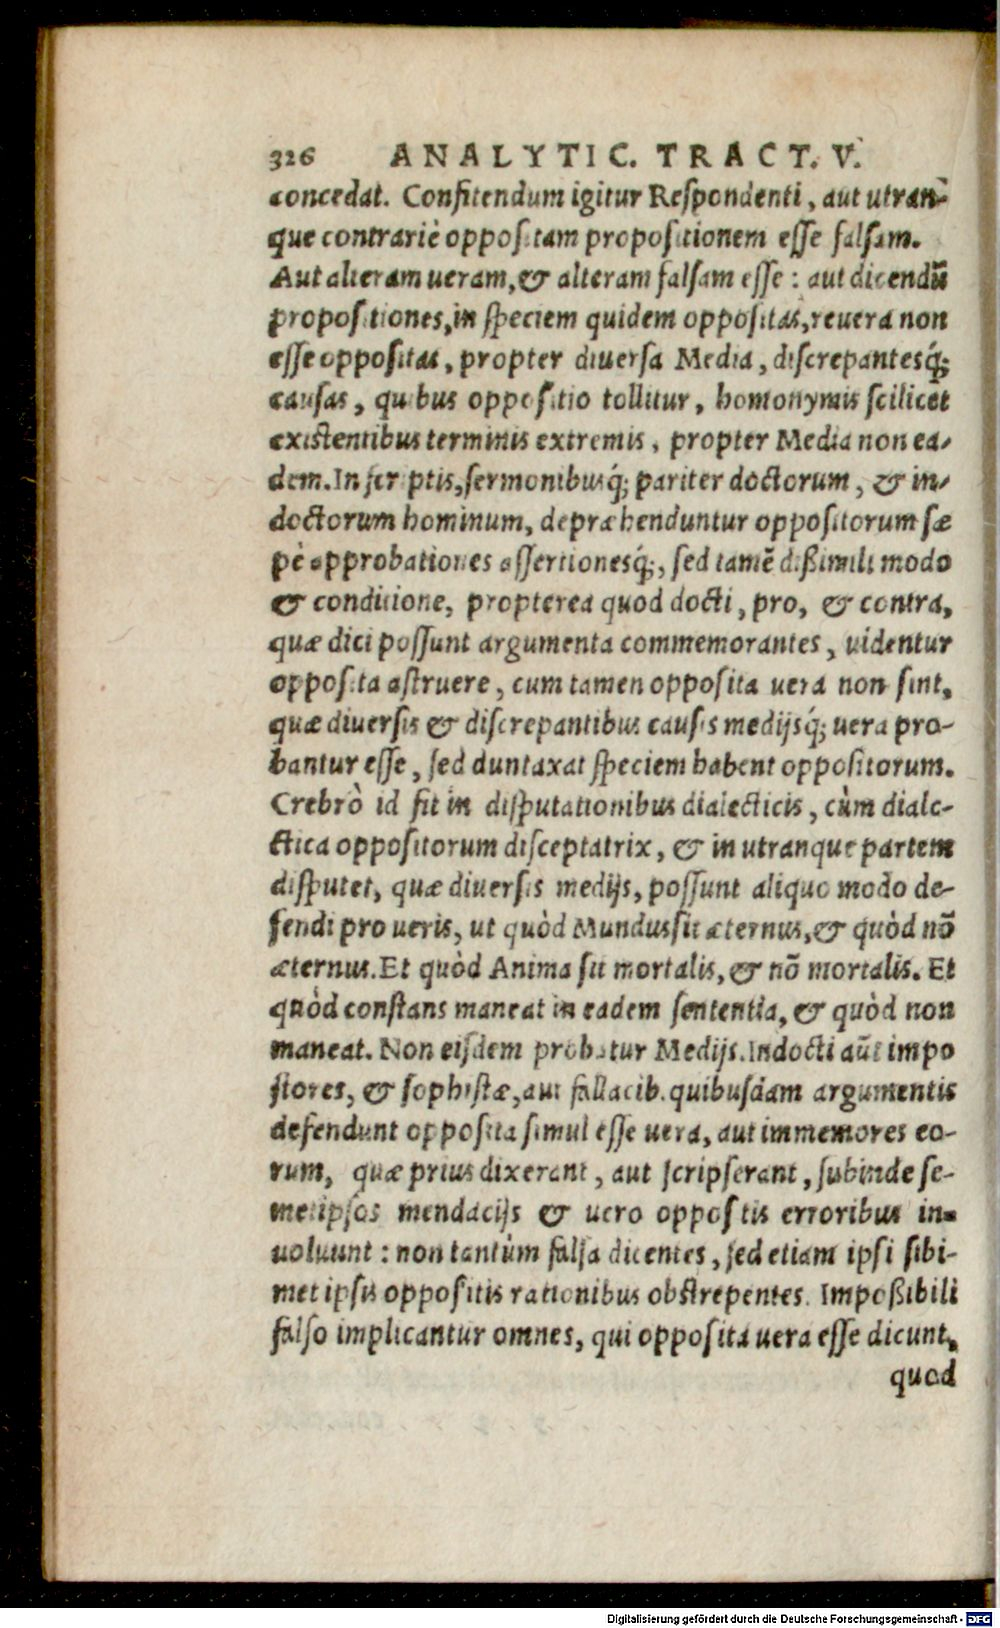 326 ANALYTIC. TRACT. V.
concedat. Confitendum igitur Respondenti, aut utran-
que contrariè oppositam propositionem esse falsam.
Aut alteram ueram, & alteram falsam esse: aut dicendũ
propositiones, in speciem quidem oppositas, reuera non
esse oppositas, propter diuersa Media, discrepantesq́;
causas, quibus oppositio tollitur, homonymis scilicet
existentibus terminis extremis, propter Media non ea-
dem. In scriptis, sermonibusq́; pariter doctorum, & in-
doctorum hominum, depræhenduntur oppositorum sæ
pè approbationes assertionesq́;, sed tamẽ dißimili modo
& conditione, propterea quod docti, pro, & contra,
quæ dici possunt argumenta commemorantes, uidentur
opposita astruere, cum tamen opposita uera non sint,
quæ diuersis & discrepantibus causis medijsq́; uera pro-
bantur esse, sed duntaxat speciem habent oppositorum.
Crebrò id fit in disputationibus dialecticis, cùm diale-
ctica oppositorum disceptatrix, & in utranque partem
disputet, quæ diuersis medijs, possunt aliquo modo de-
fendi pro ueris, ut quòd Mundus sit æternus, & quòd nõ
æternus. Et quòd Anima sit mortalis, & nõ mortalis. Et
quòd constans maneat in eadem sententia, & quòd non
maneat. Non eisdem probatur Medijs. Indocti aũt impo
stores, & sophistæ, aut fallacib. quibusdam argumentis
defendunt opposita simul esse uera, aut immemores eo-
rum, quæ prius dixerant, aut scripserant, subinde se-
metipsos mendacijs & uero oppositis erroribus in-
uoluunt: non tantùm falsa dicentes, sed etiam ipsi sibi-
met ipsis oppositis rationibus obstrepentes. Impoßibili
falso implicantur omnes, qui opposita uera esse dicunt,
quod
Digitalisierung gefördert durch die Deutsche Forschungsgemeinschaft - DFG